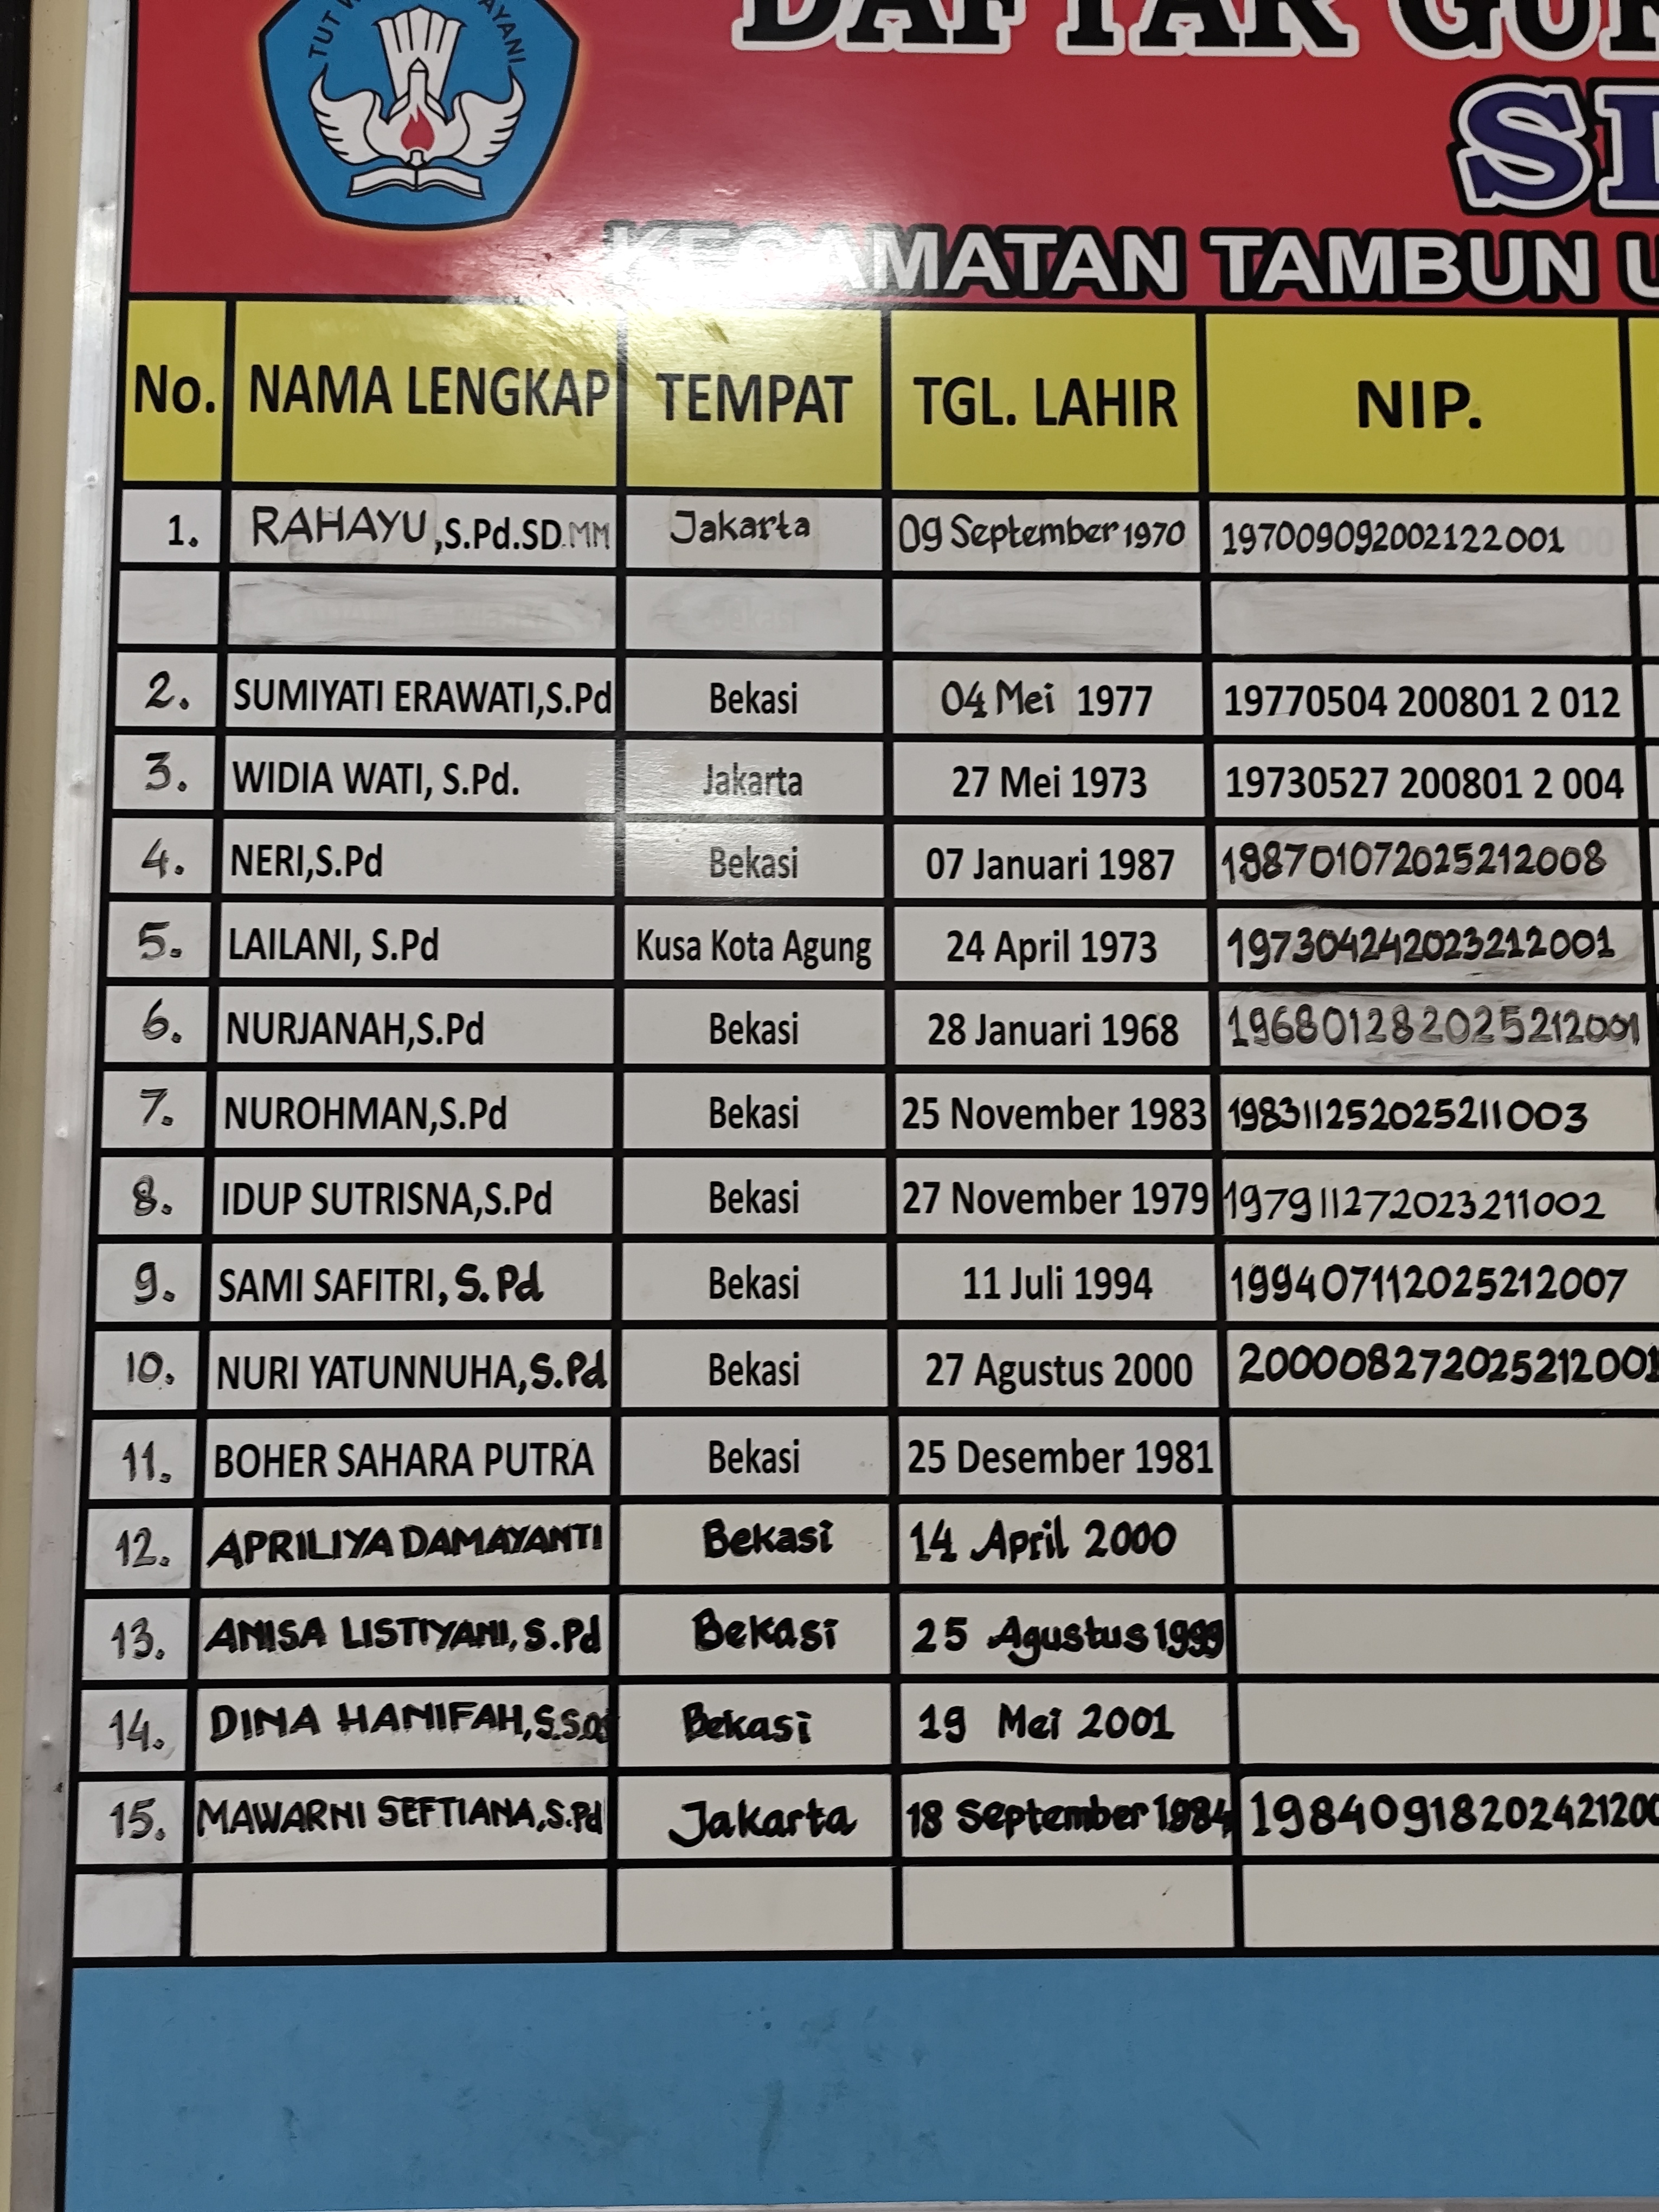 TUT AYANI
DAFTAR GUR
S
KECAMATAN TAMBUN U
No. NAMA LENGKAP TEMPAT TGL. LAHIR NIP.
1. RAHAYU,S.Pd.SD.MM Jakarta 09 September 1970 197009092002122001
2. SUMIYATI ERAWATI,S.Pd Bekasi 04 Mei 1977 19770504 200801 2 012
3. WIDIA WATI, S.Pd. Jakarta 27 Mei 1973 19730527 200801 2 004
4. NERI,S.Pd Bekasi 07 Januari 1987 198701072025212008
5. LAILANI, S.Pd Kusa Kota Agung 24 April 1973 197304242023212001
6. NURJANAH,S.Pd Bekasi 28 Januari 1968 196801282025212001
7. NUROHMAN,S.Pd Bekasi 25 November 1983 198311252025211003
8. IDUP SUTRISNA,S.Pd Bekasi 27 November 1979 197911272023211002
9. SAMI SAFITRI, S.Pd Bekasi 11 Juli 1994 199407112025212007
10. NURI YATUNNUHA,S.Pd Bekasi 27 Agustus 2000 200008272025212001
11. BOHER SAHARA PUTRA Bekasi 25 Desember 1981
12. APRILIYA DAMAYANTI Bekasi 14 April 2000
13. ANISA LISTIYANI, S.Pd Bekasi 25 Agustus 1999
14. DINA HANIFAH,S.Sos Bekasi 19 Mei 2001
15. MAWARNI SEFTIANA,S.Pd Jakarta 18 September 1984 19840918202421200